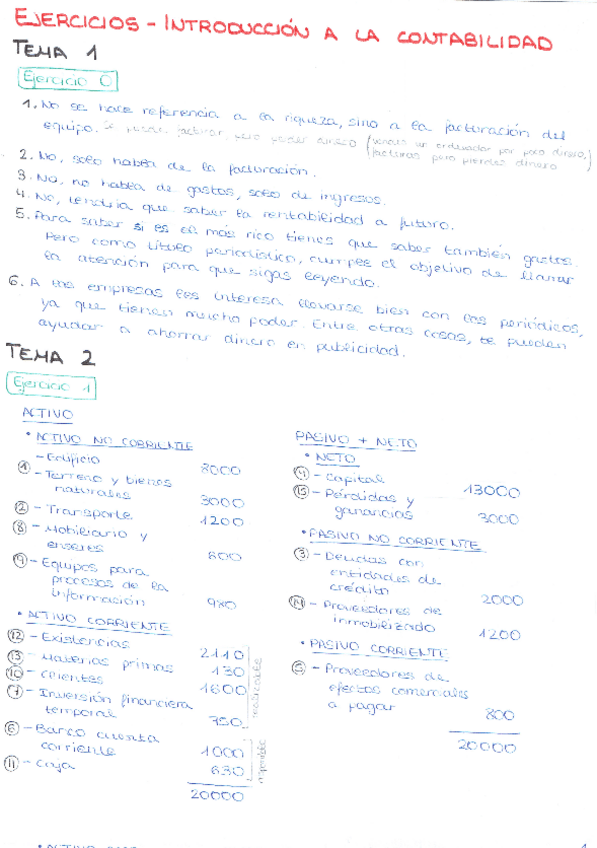 EJERCICIOS - INTRODUCCIÓN A LA CONTABILIDAD
TEMA 1
Ejercicio 0
1. No se hace referencia a la riqueza, sino a la facturación del
equipo. Se puede facturar, pero perder dinero (vendes un ordenador por poco dinero,
facturas pero pierdes dinero)
2. No, solo habla de la facturación.
3. No, no habla de gastos, solo de ingresos.
4. No, tendría que saber la rentabilidad a futuro.
5. Para saber si es el más rico tienes que saber también gastos.
Pero como titular periodístico, cumple el objetivo de llamar
la atención para que sigas leyendo.
6. A las empresas les interesa llevarse bien con los periódicos,
ya que tienen mucho poder. Entre otras cosas, te pueden
ayudar a ahorrar dinero en publicidad.
TEMA 2
Ejercicio 1
ACTIVO
• ACTIVO NO CORRIENTE
- Edificio 8000
① - Terreno y bienes
naturales 3000
② - Transporte 1200
⑧ - Mobiliario y
enseres 800
⑨ - Equipos para
procesos de la
información 980
• ACTIVO CORRIENTE
⑫ - Existencias 2110
⑬ - Materias primas 130
⑩ - Clientes 1600
⑦ - Inversión financiera
temporal 750
realizable
⑥ - Banco cuenta
corriente 1000
⑪ - Caja 630
disponible
20000
PASIVO + NETO
• NETO
④ - Capital 13000
⑮ - Pérdidas y
ganancias 3000
• PASIVO NO CORRIENTE
③ - Deudas con
entidades de
crédito 2000
⑭ - Proveedores de
inmovilizado 1200
• PASIVO CORRIENTE
⑤ - Proveedores de
efectos comerciales
a pagar 800
20000